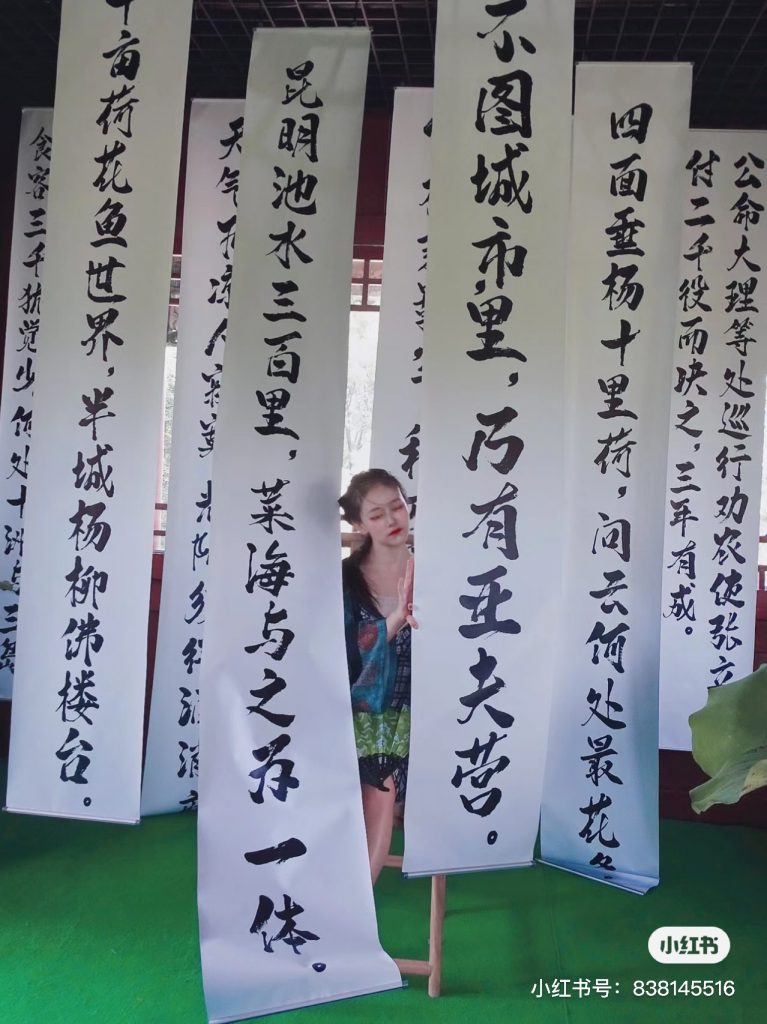 公命大理等处巡行劝农使张立
付二千役而决之，三年有成。
四面垂杨十里荷，问云何处最花
不图城市里，乃有亚夫营。
昆明池水三百里，菜海与之为一体。
天气 凉人寂寞
十亩荷花鱼世界，半城杨柳佛楼台。
食客三千犹觉少，何处十洲与三岛
小红书
小红书号：838145516